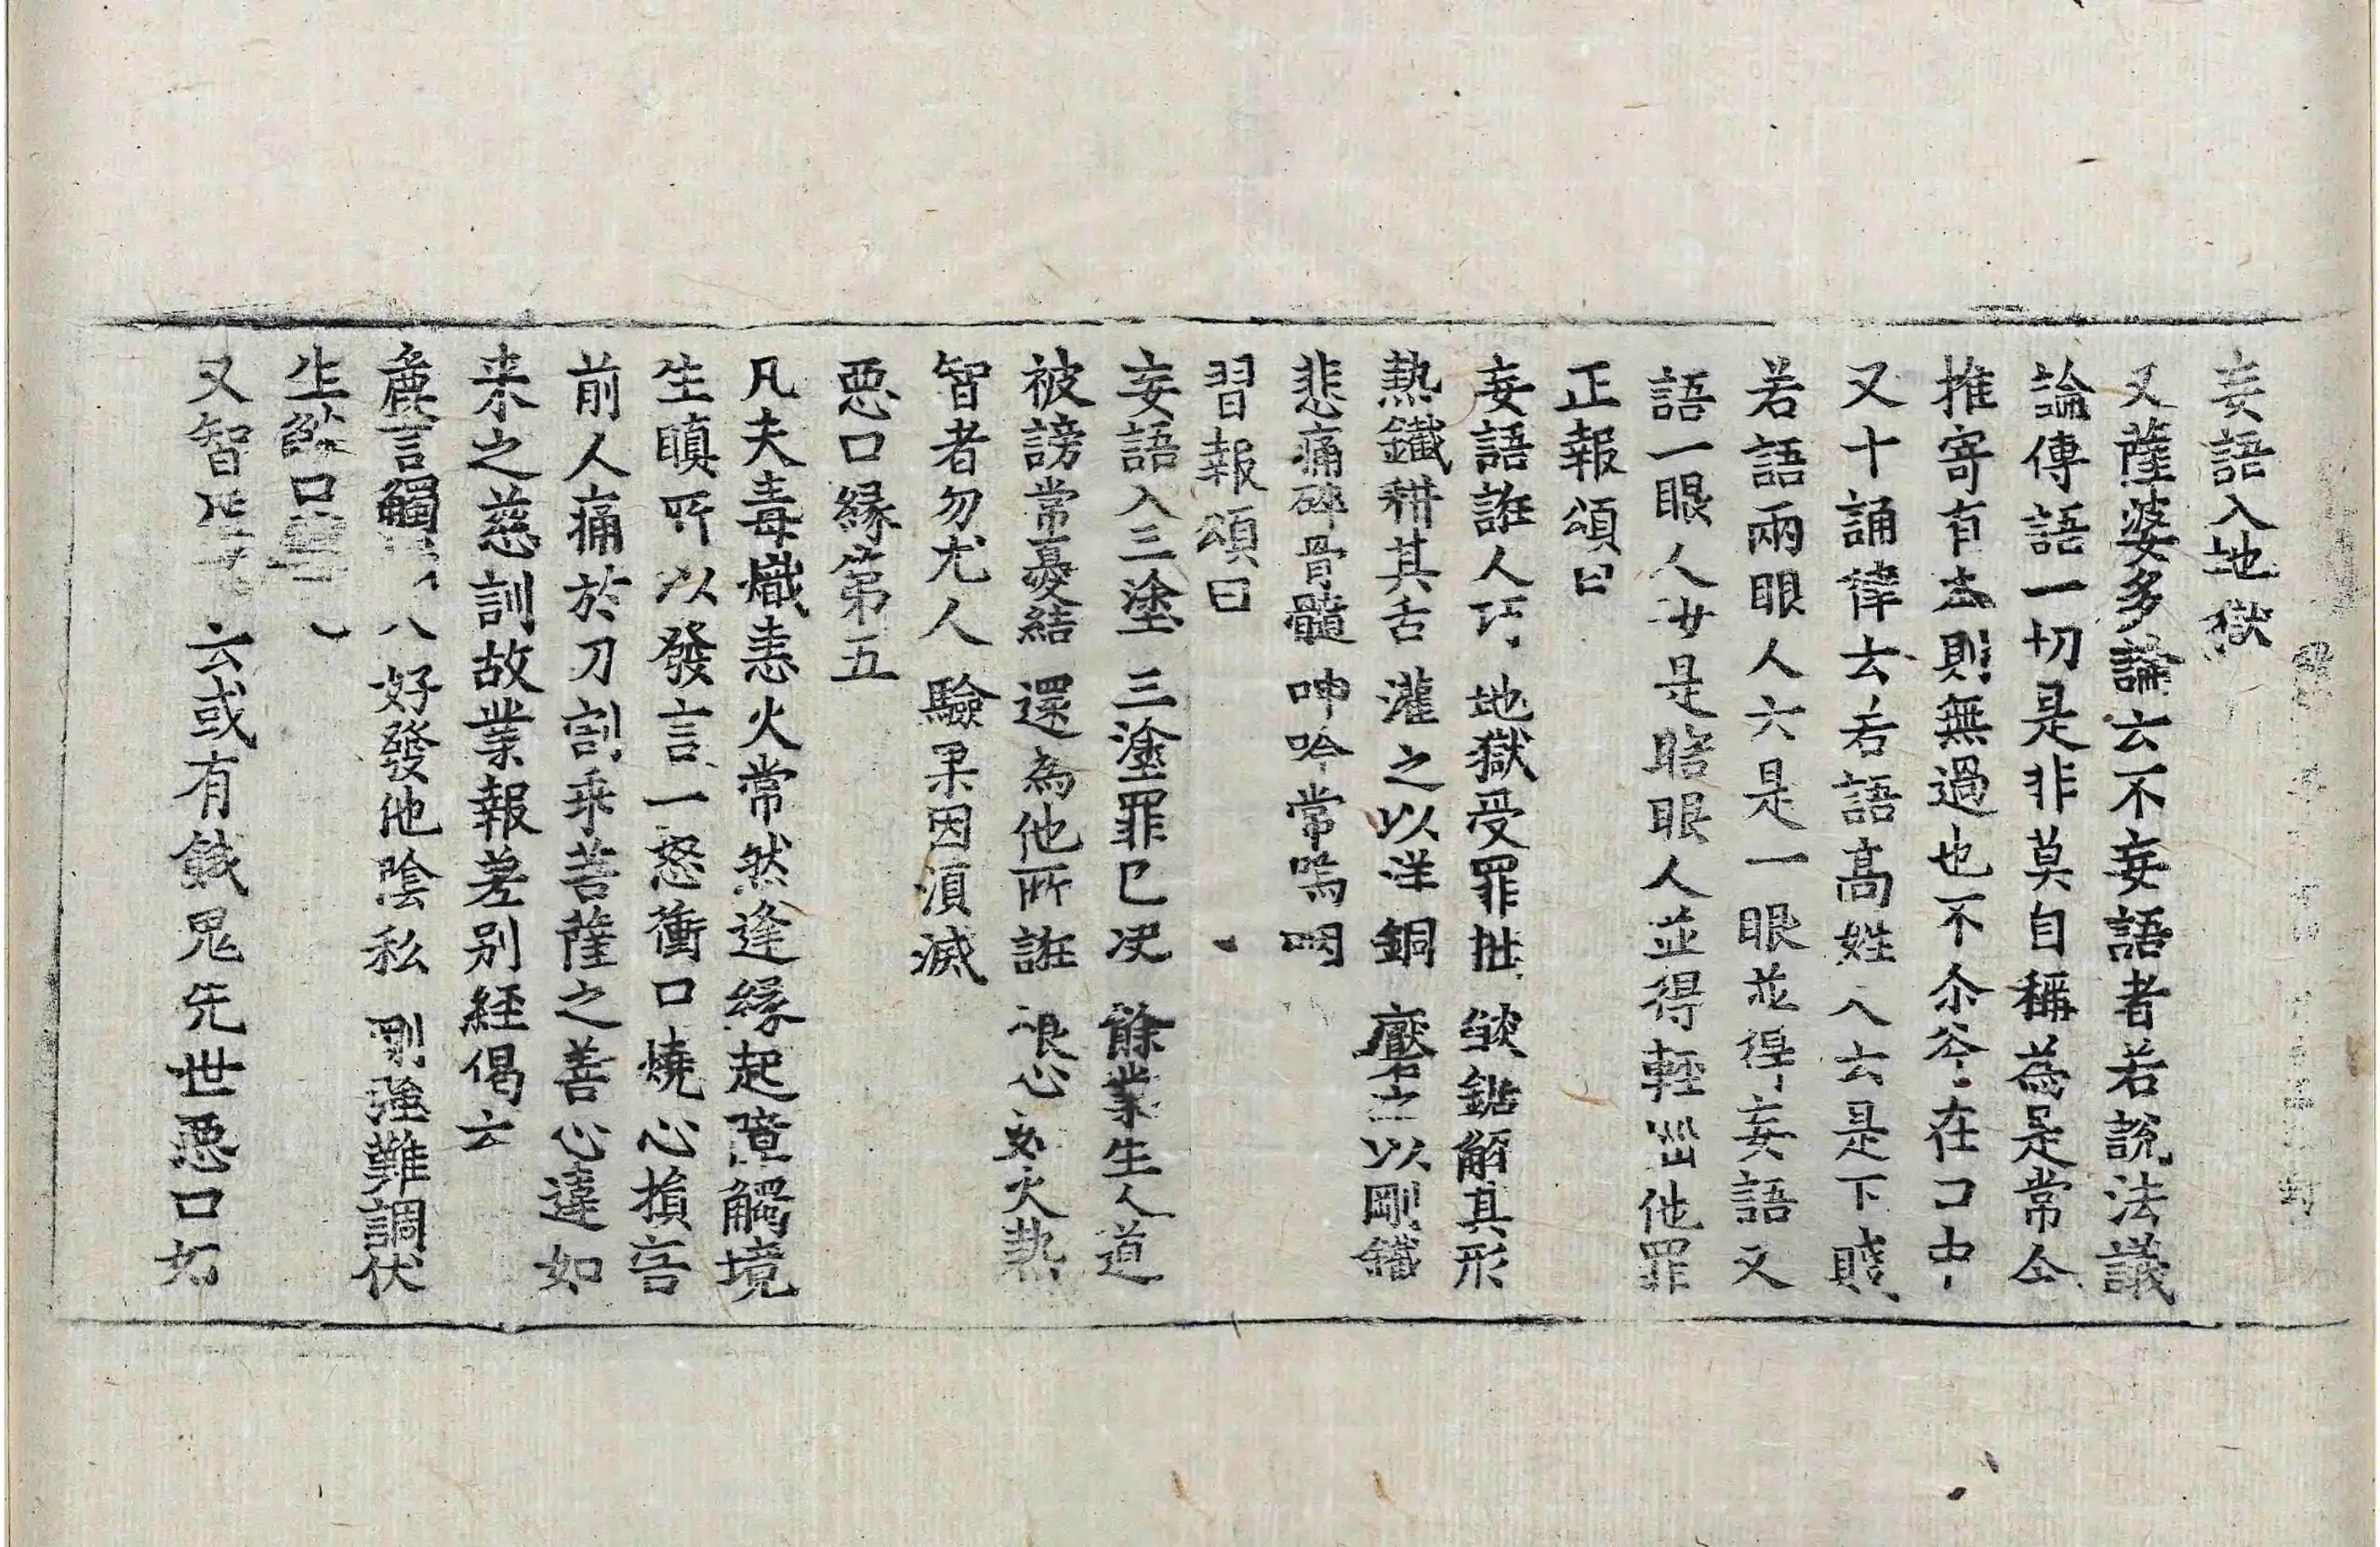 妄語入地獄
又薩婆多論云不妄語者若說法議
論傳語一切是非莫自稱為是常令
推寄有本則無過也不尒斧在口中
又十誦律云若語高姓人云是下賤
若語兩眼人云是一眼並得妄語又
語一眼人汝是瞎眼人並得輕惱他罪
正報頌曰
妄語誑人巧 地獄受罪拙 焰鋸解其形
熱鐵耕其舌 灌之以洋銅 磨之以剛鐵
悲痛碎骨髓 呻吟常嗚咽
習報頌曰
妄語入三塗 三塗罪已决 餘業生人道
被謗常憂結 還為他所誑 恨心如火熱
智者勿尤人 驗果因須滅
惡口緣第五
凡夫毒熾恚火常然逢緣起障觸境
生瞋所以發言一怒衝口燒心損害
前人痛於刀割乖菩薩之善心違如
来之慈訓故業報差別経偈云
麁言觸 人 好發他陰私 剛強難調伏
生焰口
又智 云或有餓鬼先世惡口好